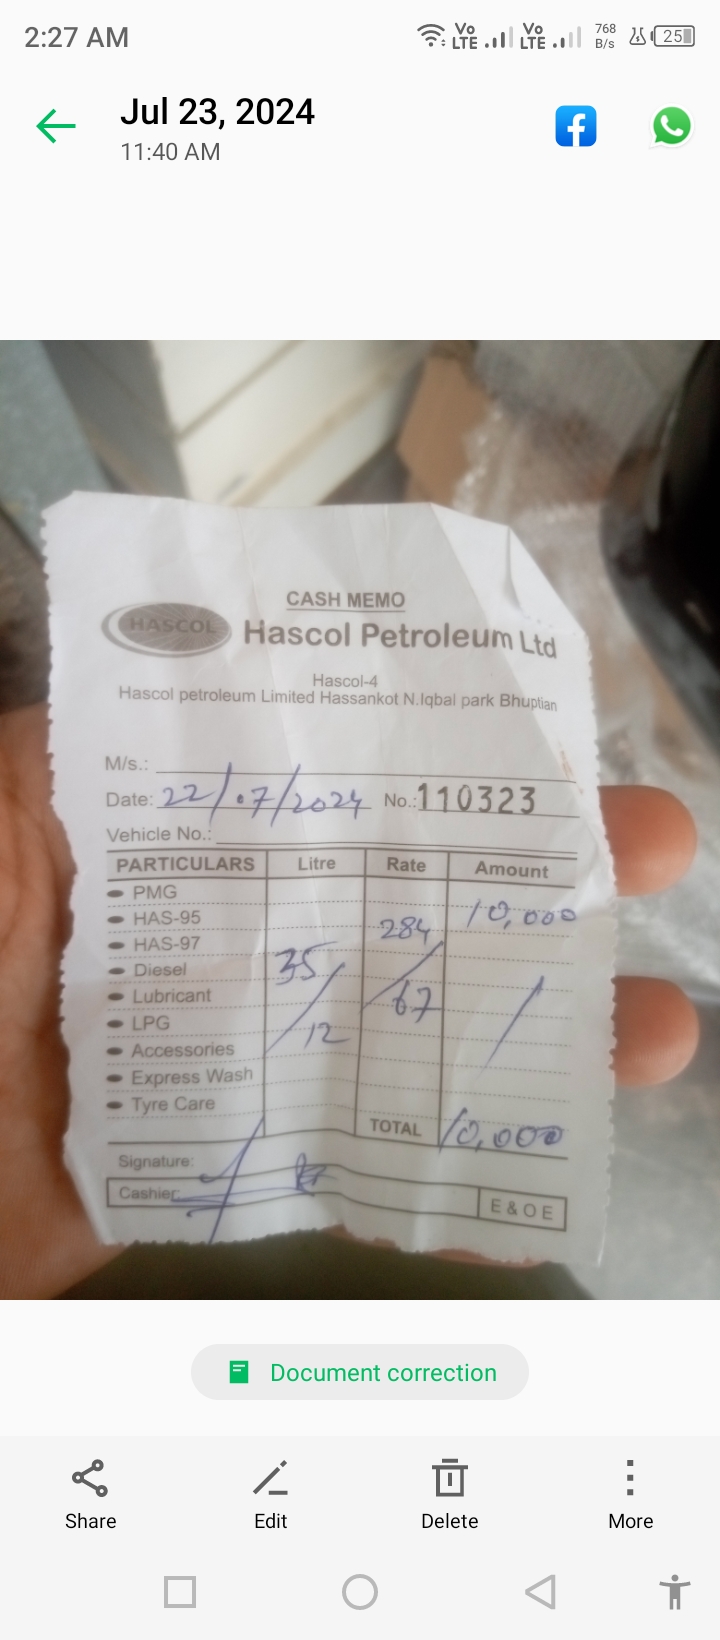 2:27 AM
Vo LTE Vo LTE 768 B/s 25
Jul 23, 2024
11:40 AM
CASH MEMO
HASCOL Hascol Petroleum Ltd
Hascol-4
Hascol petroleum Limited Hassankot N.Iqbal park Bhuptian
M/s.:
Date: 22/07/2024 No.: 110323
Vehicle No.:
PARTICULARS Litre Rate Amount
PMG
HAS-95 10,000
HAS-97 284
Diesel 35
Lubricant 67
LPG 12
Accessories
Express Wash
Tyre Care
TOTAL 10,000
Signature:
Cashier:
E & O E
Document correction
Share Edit Delete More